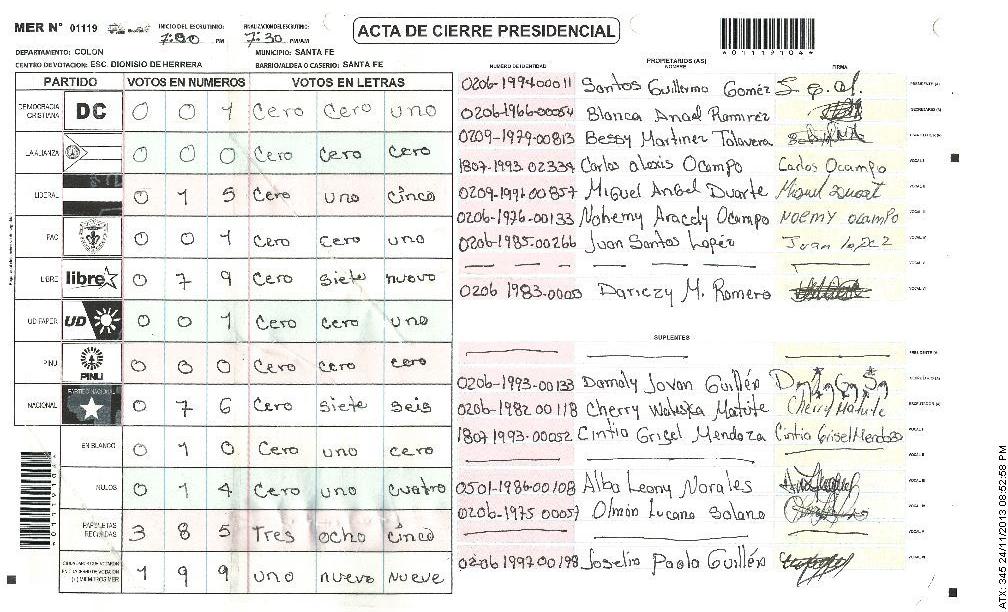 MER N° 01119 INICIO DEL ESCRUTINIO: 7:00 PM FINALIZACION ESCRUTINIO: 7:30 PM/AM
ACTA DE CIERRE PRESIDENCIAL
*01119104*
DEPARTAMENTO: COLON MUNICIPIO: SANTA FE
CENTRO DE VOTACION: ESC. DIONISIO DE HERRERA BARRIO/ALDEA O CASERIO: SANTA FE
PARTIDO VOTOS EN NUMEROS VOTOS EN LETRAS
DEMOCRACIA CRISTIANA DC 0 0 1 Cero Cero uno
LA ALIANZA 0 0 0 Cero Cero Cero
LIBERAL 0 1 5 Cero uno cinco
FAC 0 0 1 Cero Cero uno
LIBRE libre 0 7 9 Cero Siete nuevo
UD FAPER UD 0 0 1 Cero Cero uno
PINU PINU 0 0 0 Cero Cero Cero
NACIONAL PARTIDO NACIONAL 0 7 6 Cero Siete Seis
EN BLANCO 0 1 0 Cero uno cero
NULOS 0 1 4 Cero uno cuatro
PAPELETAS RECIBIDAS 3 8 5 Tres ocho cinco
1 9 9 uno nuevo nueve
PROPIETARIOS (AS)
NUMERO DE IDENTIDAD NOMBRE FIRMA
0206-199400011 Santos Guillermo Goméz PRESIDENTE (A)
0206-1966-00054 Blanca Anael Ramirez SECRETARIO (A)
0209-1979-00813 Bessy Martinez Talavera
1807-1993 02334 Carlos alexis Ocampo Carlos Ocampo VOCAL I
0209-1991-00857 Miguel Angel Duarte VOCAL II
0206-1976-00133 Nohemy Aracely Ocampo NOEMY OCAMPO
0206-1985-00266 Juan Santos Lopéz Juan lopez
0206 1983-0005 Dariczy M. Romero
SUPLENTES
PRESIDENTE (A)
0206-1993-00133 Damaly Jovan Guillén SECRETARIO (A)
0206-1982 00118 Cherry Waleska Matute Cherry Matute ESCRUTADOR (A)
1807 1993-00052 Cintia Grisel Mendoza Cintia Grisel Mendoza VOCAL I
0501-1986-00108 Alba Leony Norales
0206-1975 00057 Olmán Lucano Solano
0206-1992 00198 Joselin Paola Guillén
*01119104*
ATX: 345 24/11/2013 08:52:58 PM